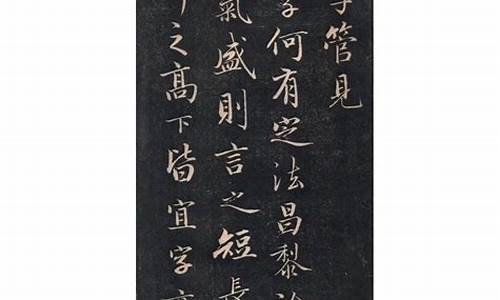 管見
何有定法昌黎
氣盛則言之短長
之高下皆宜字